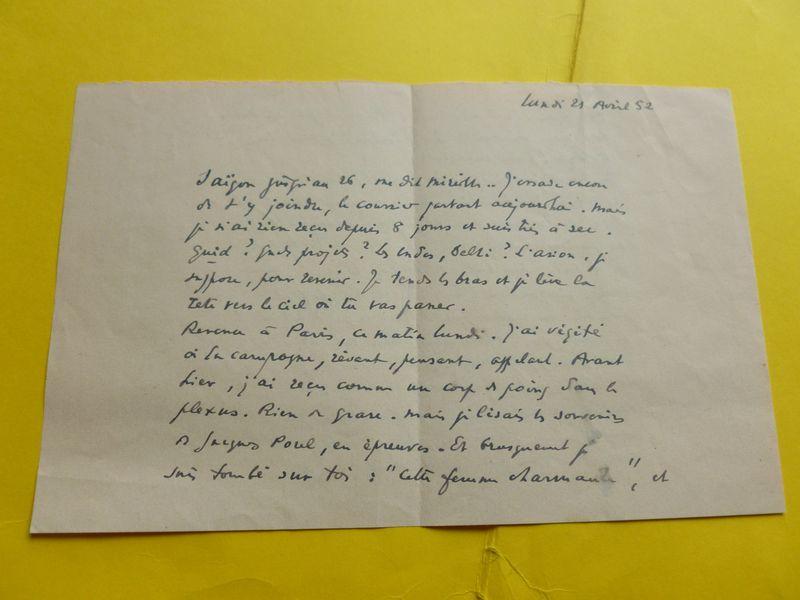 Lundi 21 Avril 52
Saïgon jusqu'au 26, me dit Mireille.. J'essaie encore
de t'y joindre, le courrier partant aujourd'hui. Mais
je n'ai rien reçu depuis 8 jours et suis très à sec.
Quid ? Quels projets ? Les Indes, Delhi ? L'avion, je
suppose, pour revenir. Je tends les bras et je lève la
tête vers le ciel où tu vas passer.
Revenu à Paris, ce matin lundi. J'ai végété
à la campagne, rêvant, pensant, appelant. Avant
hier, j'ai reçu comme un coup de poing dans le
plexus. Rien de grave. Mais je lisais les souvenirs
de Jacques Porel, en épreuves. Et brusquement je
suis tombé sur toi : "Cette femme charmante", et